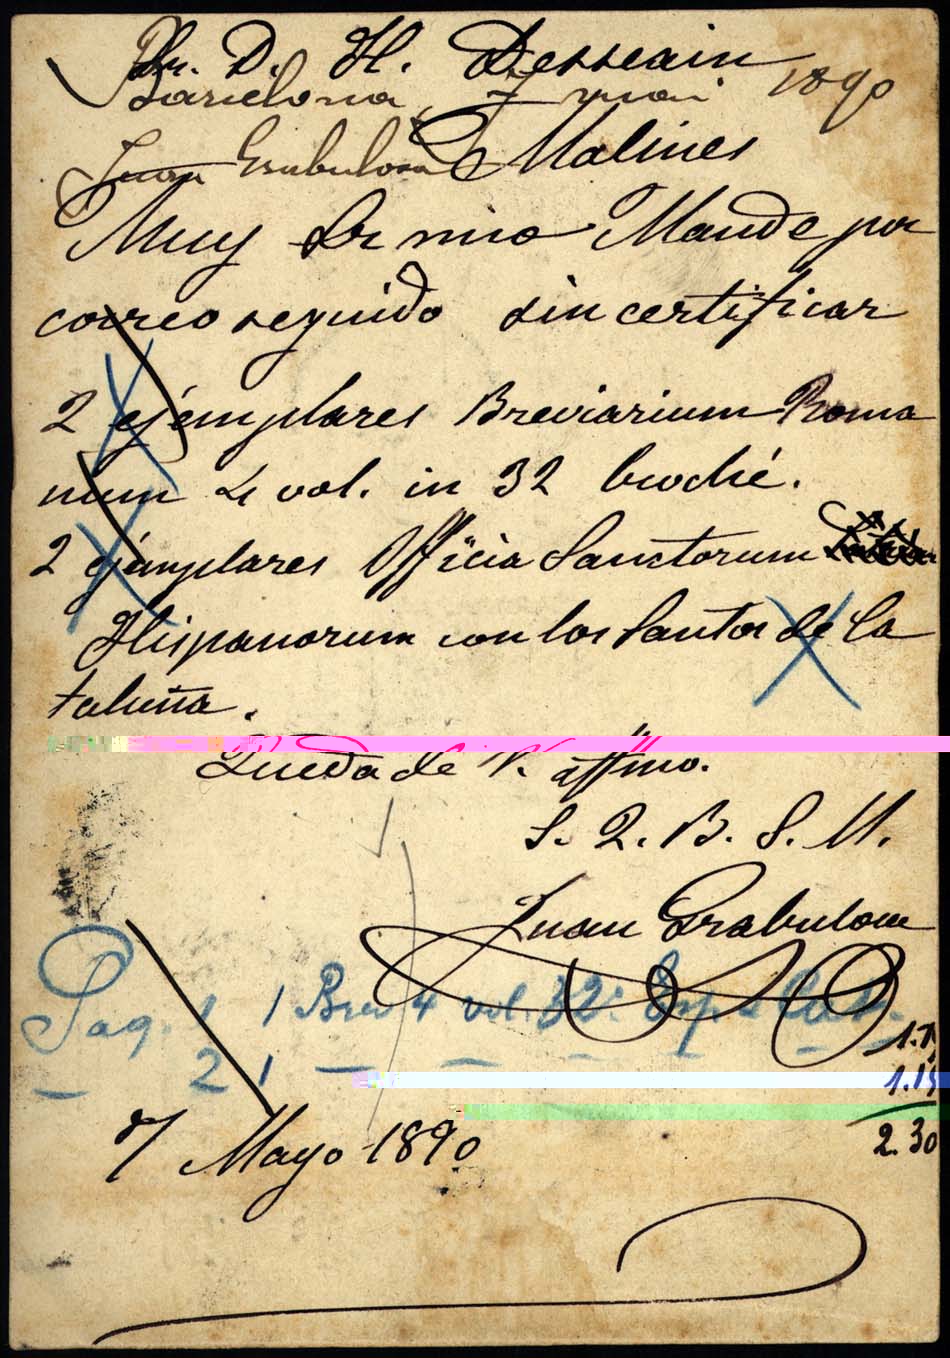 Sr. D. H. Dessain
Barcelona, 7 mai 1890
Juan Grabulosa Malines
Muy Sr mio Mande por
correo seguido sin certificar
2 ejemplares Breviarium Roma
num 4 vol. in 32 broché.
2 ejemplares Officia Sanctorum
Hispanorum con los Santos de Ca
taluña.
Queda de V. affmo.
S. Q. B. S. M.
Juan Grabulosa
Paq. 1 1 Brev 4 vol 32º Esp & Cat.
1.15
— 2 1 — — — — —
1.15
2.30
7 Mayo 1890